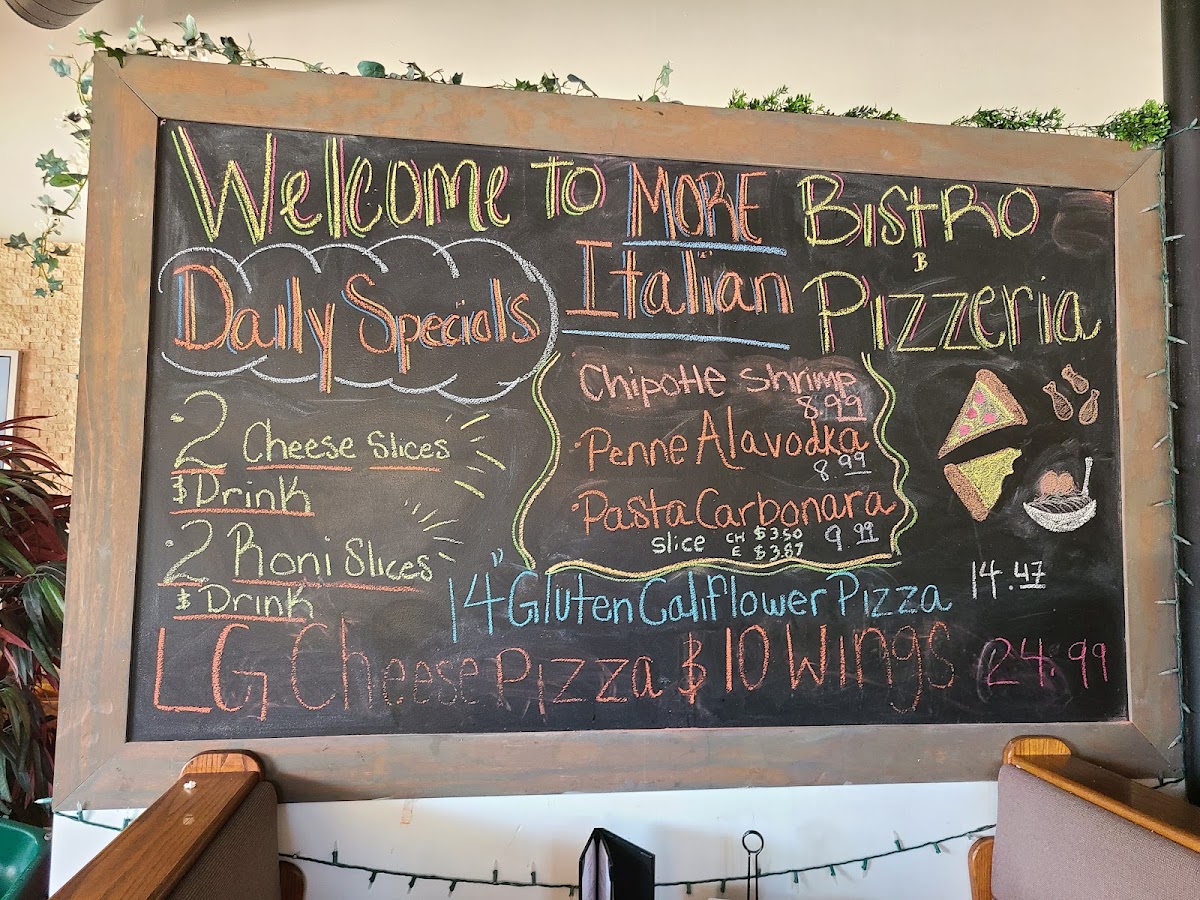 Welcome to MORE Bistro
Italian & Pizzeria
Daily Specials
·2 Cheese Slices
& Drink
·2 Roni Slices
& Drink
Chipotle Shrimp
8.99
·Penne Alavodka
8.99
·Pasta Carbonara
9.99
slice CH $3.50
E $3.87
14" Gluten Califlower Pizza 14.47
LG Cheese Pizza & 10 Wings 24.99